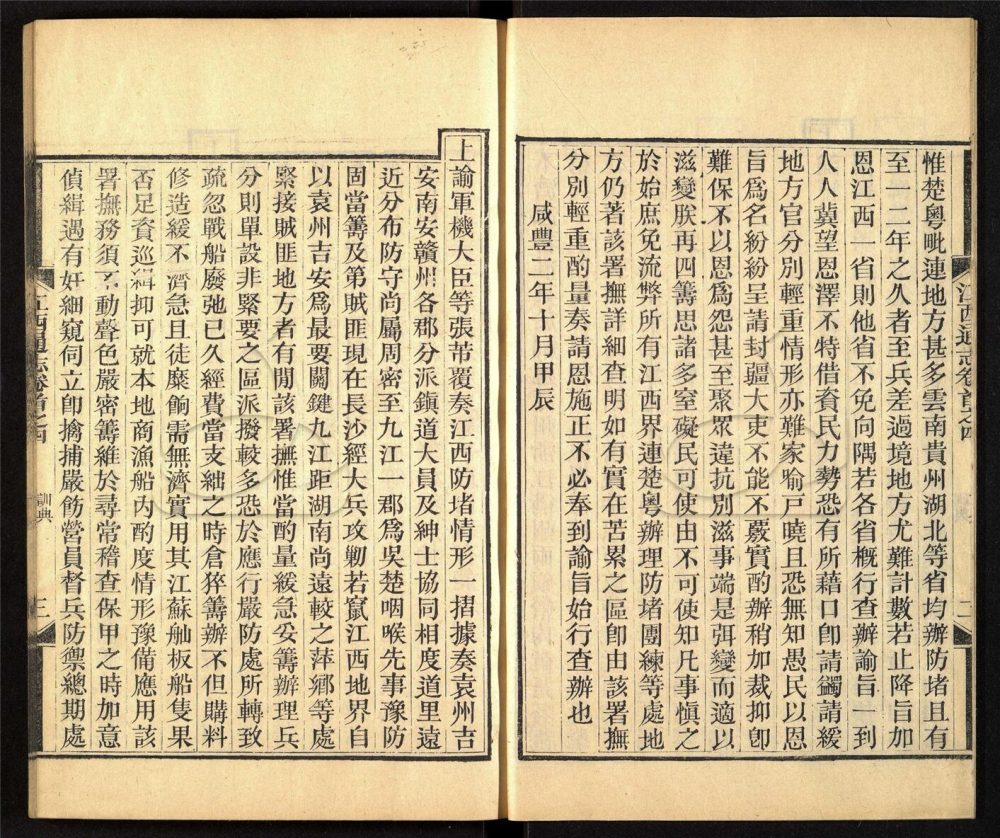 惟楚粵毗連地方甚多雲南貴州湖北等省均辦防堵且有
至一二年之久者至兵差過境地方尤難計數若止降旨加
恩江西一省則他省不免向隅若各省概行查辦諭旨一到
人人冀望恩澤不特借資民力勢恐有所藉口卽請蠲請緩
地方官分別輕重情形亦難家喻戶曉且恐無知愚民以恩
旨爲名紛紛呈請封疆大吏不能不覈實酌辦稍加裁抑卽
難保不以恩爲怨甚至聚眾違抗別滋事端是弭變而適以
滋變朕再四籌思諸多窒礙民可使由不可使知凡事愼之
於始庶免流弊所有江西界連楚粵辦理防堵團練等處地
方仍著該署撫詳細查明如有實在苦累之區卽由該署撫
分別輕重酌量奏請恩施正不必奉到諭旨始行查辦也
咸豐二年十月甲辰
上諭軍機大臣等張芾覆奏江西防堵情形一摺據奏袁州吉
安南安贛州各郡分派鎭道大員及紳士協同相度道里遠
近分布防守尚屬周密至九江一郡爲吳楚咽喉先事豫防
固當籌及第賊匪現在長沙經大兵攻剿若竄江西地界自
以袁州吉安爲最要關鍵九江距湖南尚遠較之萍鄉等處
緊接賊匪地方者有閒該署撫惟當酌量緩急妥籌辦理兵
分則單設非緊要之區派撥較多恐於應行嚴防處所轉致
疏忽戰船廢弛已久經費當支絀之時倉猝籌辦不但購料
修造緩不濟急且徒糜餉需無濟實用其江蘇舢板船隻果
否足資巡緝抑可就本地商漁船內酌度情形豫備應用該
署撫務須不動聲色嚴密籌維於尋常稽查保甲之時加意
偵緝遇有奸細窺伺立卽擒捕嚴飭營員督兵防禦總期處
江西通志卷首之四
訓典
三
江西通志卷首之四